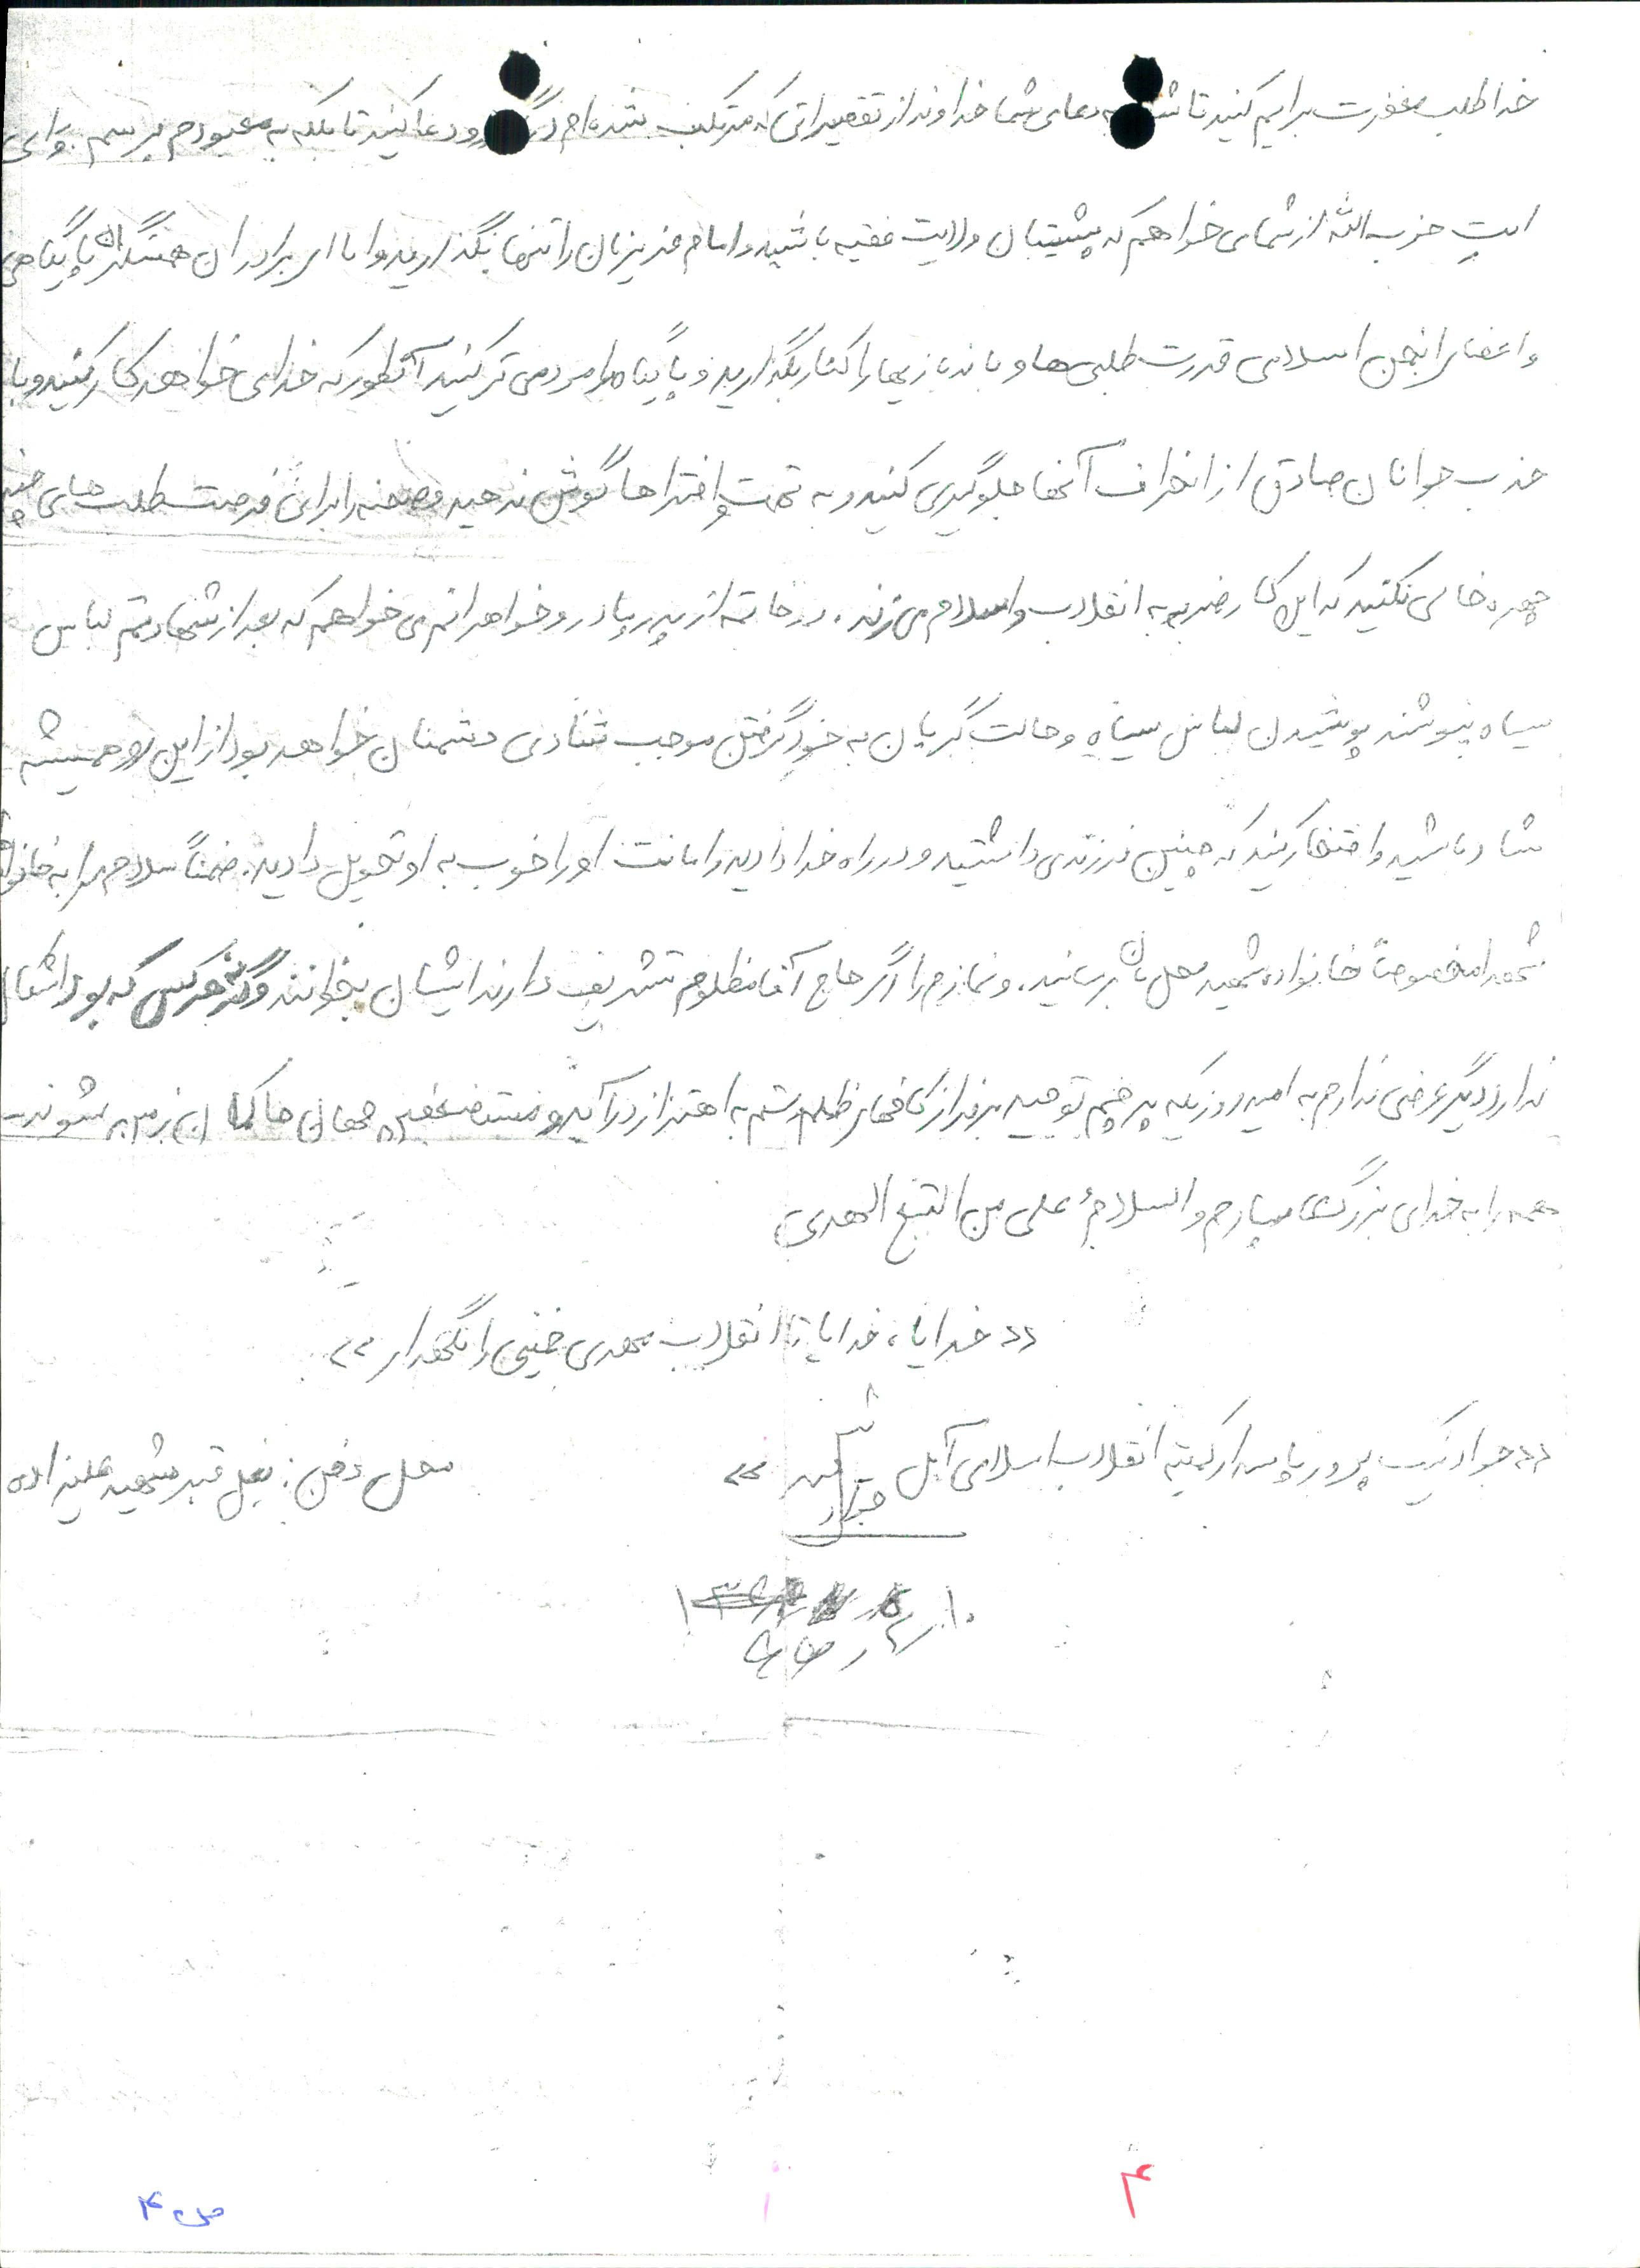 خدا طلب مغفرت برایم کنید تا به دعای شما خداوند از تقصیراتی که مرتکب شده‌ام و دعا کنید تا بلکه به معبودم برسم. و ای
امت حزب الله از شما می خواهم که پشتیبان ولایت فقیه باشید و امام عزیزمان را تنها نگذارید و اما ای برادران
و اعضای انجمن اسلامی قدرت طلبی ها و باندبازیها را کنار بگذارید و پایگاه را مردمی تر کنید آنطور که خدا می خواهد کار کنید و با
جذب جوانان صادق از انحراف آنها جلوگیری کنید و به تهمت و افتراها گوش ندهید و صحنه را برای فرصت طلب های چند
چهره خالی نکنید که این کار ضربه به انقلاب و اسلام می زند. در خاتمه از پدر و مادر و خواهرانم می خواهم که بعد از شهادتم لباس
سیاه نپوشند پوشیدن لباس سیاه و حالت گریان به خود گرفتن موجب شادی دشمنان خواهد بود از این رو همیشه
شاد باشید و افتخار کنید که چنین فرزندی داشتید و در راه خدا دادید و امانت او را خوب به او تحویل دادید. ضمناً سلام مرا به خانواده
شهدا مخصوصاً خانواده شهید محل مان برسانید. و نمازم را اگر حاج آقا مظلوم تشریف دارند ایشان بخوانند وگرنه هر کس که بود اشکال
ندارد دیگر عرضی ندارم به امید روزیکه پرچم توحید بر فراز کاخهای ظلم و ستم به اهتزاز درآید و مستضعفین جهان حاکمان زمین شوند
همه را به خدای بزرگ می سپارم والسلام علی من التبع الهدی
«خدایا، خدایا تا انقلاب مهدی خمینی را نگهدار»
«جواد نیک پرور پاسدار کمیته انقلاب اسلامی آمل »
محل دفن: بغل قبر شهید علیزاده
۴
ص ۴